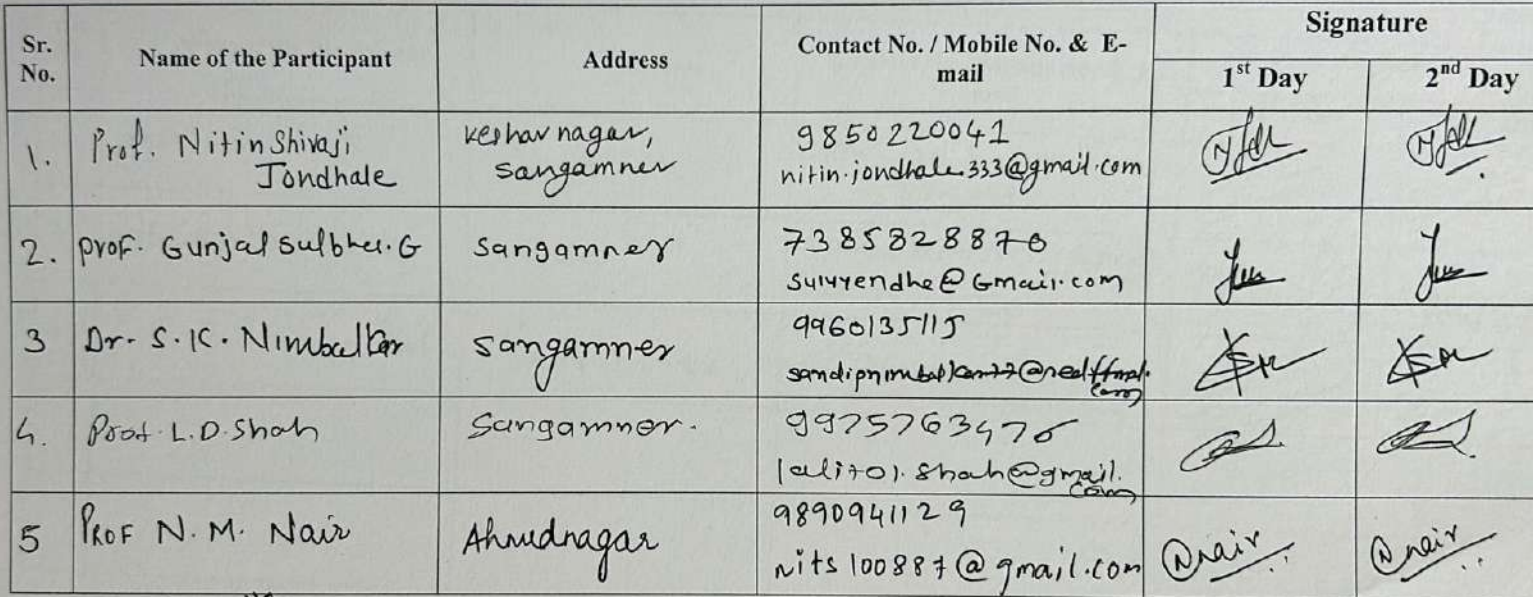 Sr. No.
Name of the Participant
Address
Contact No. / Mobile No. & E-mail
Signature
1st Day
2nd Day
1.
Prof. Nitin Shivaji
Jondhale
Keshav nagar,
Sangamner
9850220041
nitin.jondhale.333@gmail.com
2.
prof. Gunjal Sulbha. G
Sangamner
7385828870
@Gmail.com
3
Dr. S. K. Nimbalkar
Sangamner
9960135115
4.
Prof. L.D. Shah
Sangamner.
9975763476
lalit01.shah@gmail.
com
5
PROF N. M. Nair
Ahmednagar
9890941129
nits100887@gmail.com
Nair
Nair